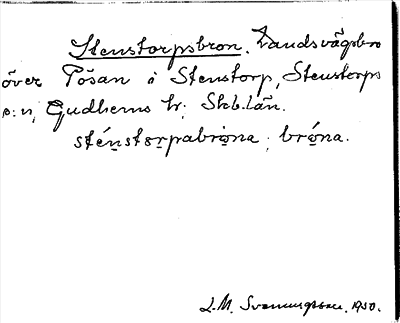 Stenstorpsbron. Landsvägsbro
över Pösan i Stenstorp, Stenstorps
s:n, Gudhems hr. Skb.län.
sténstorpabròna; bróna.
L.M. Svenungsson. 1930.